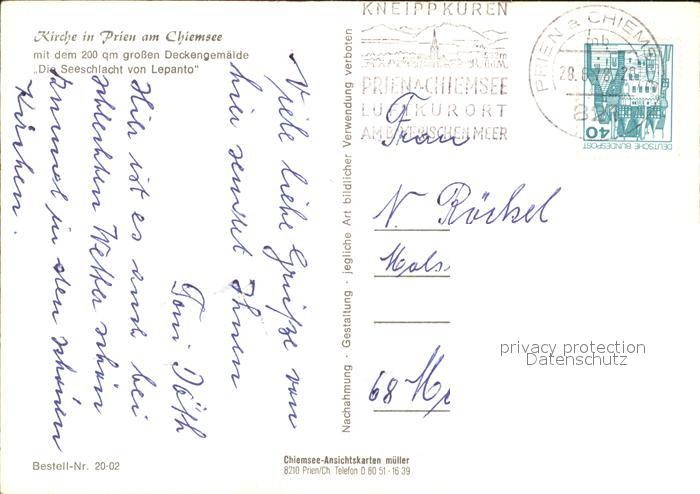 Kirche in Prien am Chiemsee
mit dem 200 qm großen Deckengemälde
„Die Seeschlacht von Lepanto"
Viele liebe Grüße von
hier sendet Ihnen
Toni Töth
Hier ist es auch bei
schlechten Wetter schön
einmal in den schönen
Kirchen.
Bestell-Nr. 20-02
Nachahmung · Gestaltung · jegliche Art bildlicher Verwendung verboten
Chiemsee-Ansichtskarten müller
8210 Prien/Ch. Telefon 0 80 51 - 16 39
KNEIPPKUREN
PRIEN A CHIEMSEE
LUFTKURORT
AM BAYERISCHEN MEER
PRIEN A CHIEMS
821
40
DEUTSCHE BUNDESPOST
Frau
N. Röckel
68
privacy protection
Datenschutz